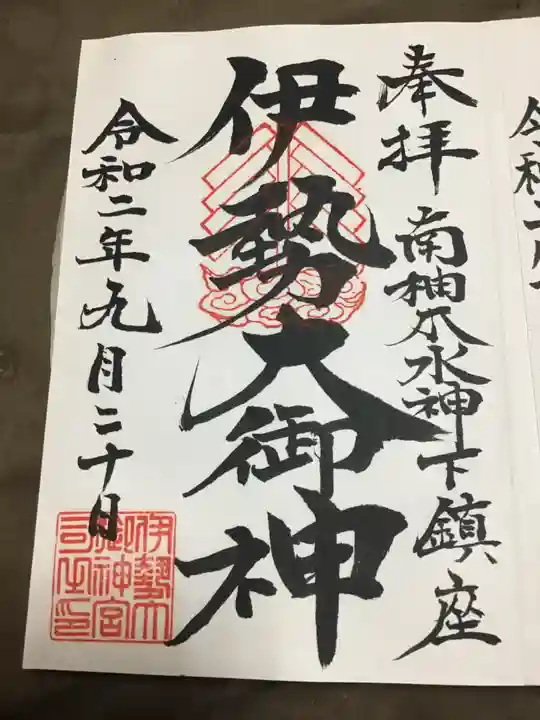 奉拝
南柚木水神下鎮座
伊勢大御神
令和二年九月二十日
伊勢大
御神宮
司之印
令和二